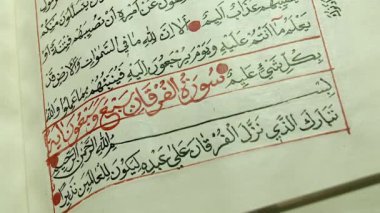 يصيبهم عذاب اليم الا ان لله ما في السموات والارض قد
يعلم ما انتم عليه ويوم يرجعون اليه فينبئهم بما عملوا والله
بكل شيء عليم
سورة الفرقان سبع وسبعون اية
بسم الله الرحمن الرحيم
تبارك الذي نزل الفرقان على عبده ليكون للعالمين نذيرا